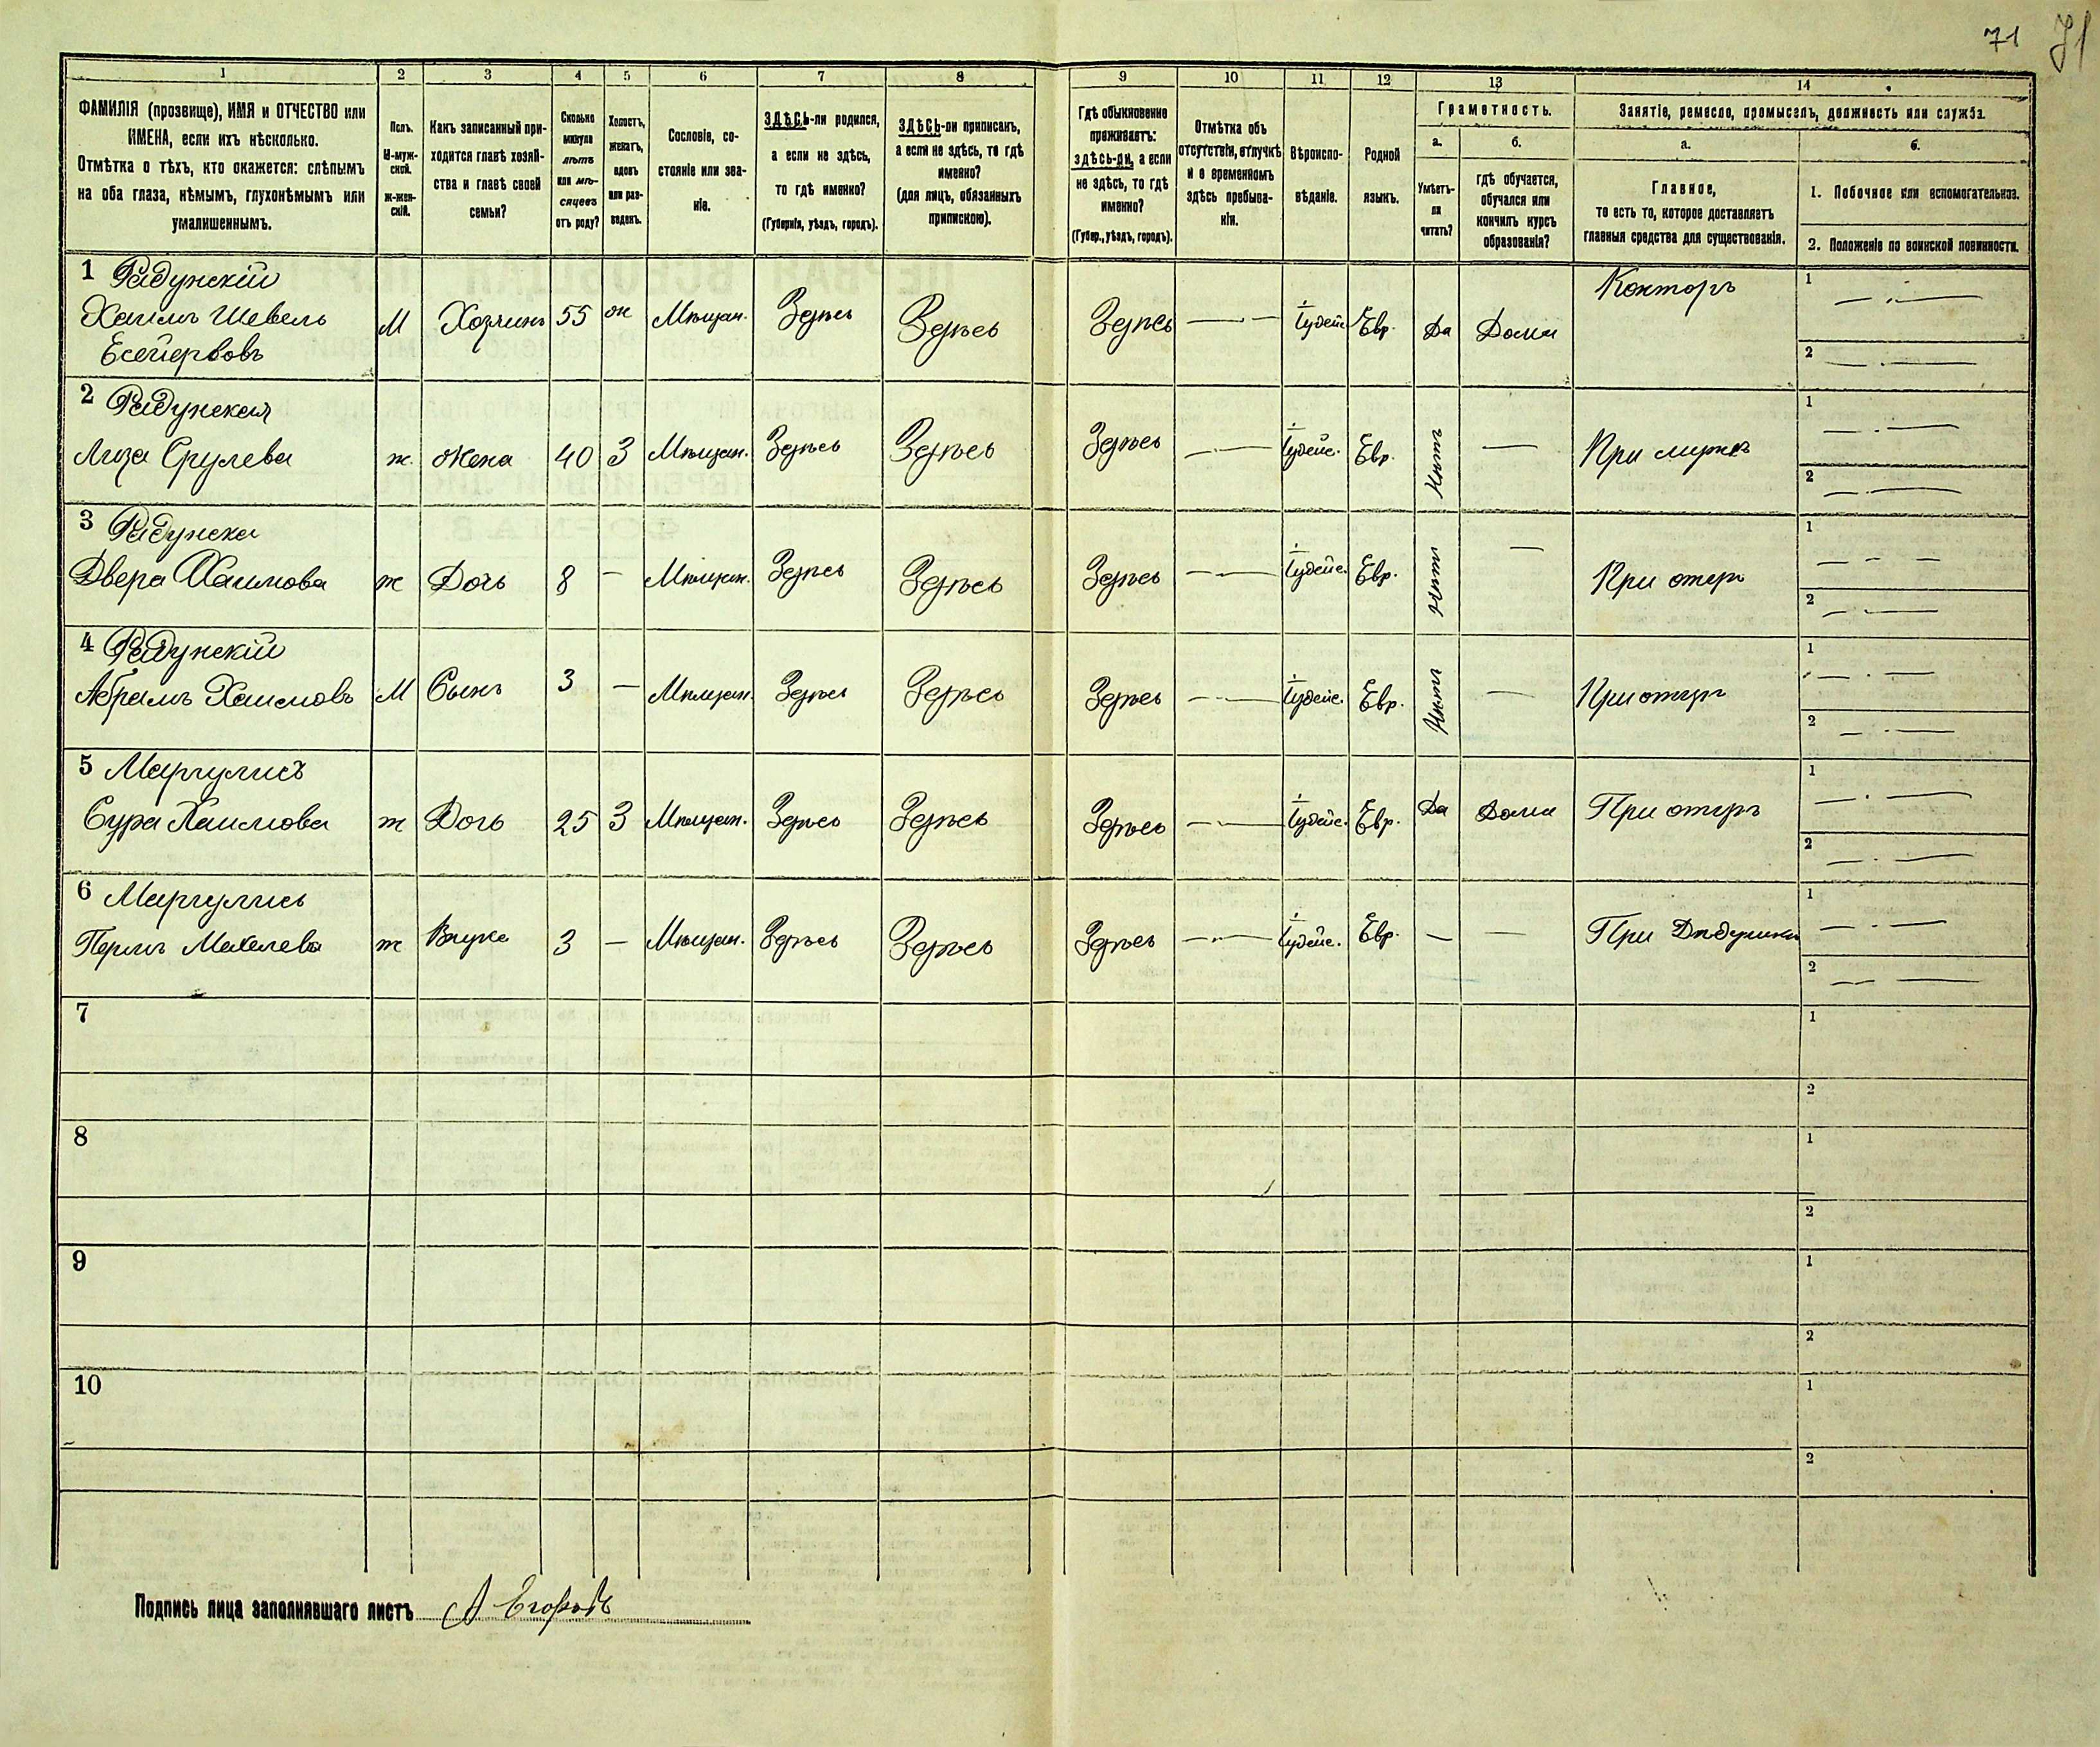 71 71
1 2 3 4 5 6 7 8 9 10 11 12 13 14
ФАМИЛІЯ (прозвище), ИМЯ и ОТЧЕСТВО или
ИМЕНА, если ихъ нѣсколько.
Отмѣтка о тѣхъ, кто окажется: слѣпымъ
на оба глаза, нѣмымъ, глухонѣмымъ или
умалишеннымъ.
Полъ.
М-муж-
ской.
ж-жен-
скій.
Какъ записанный при-
ходится главѣ хозяй-
ства и главѣ своей
семьи?
Сколько
минуло
лѣтъ
или мѣ-
сяцевъ
отъ роду?
Холостъ,
женатъ,
вдовъ
или раз-
веденъ.
Сословіе, со-
стояніе или зва-
ніе.
ЗДѢСЬ-ли родился,
а если не здѣсь,
то гдѣ именно?
(Губернія, уѣздъ, городъ).
ЗДѢСЬ-ли приписанъ,
а если не здѣсь, то гдѣ
именно?
(для лицъ, обязанныхъ
припискою).
Гдѣ обыкновенно
проживаетъ:
здѣсь-ли, а если
не здѣсь, то гдѣ
именно?
(Губер., уѣздъ, городъ).
Отмѣтка объ
отсутствіи, отлучкѣ
и о временномъ
здѣсь пребыва-
ніи.
Вѣроиспо-
вѣданіе.
Родной
языкъ.
Грамотность.
а.
Умѣетъ-
ли
читать?
б.
гдѣ обучается,
обучался или
кончилъ курсъ
образованія?
Занятіе, ремесло, промыселъ, должность или служба.
а.
Главное,
то есть то, которое доставляетъ
главныя средства для существованія.
б.
1. Побочное или вспомогательное.
2. Положеніе по воинской повинности.
1 Радунскій
Хаимъ Шевель
М Хозяинъ 55 ж Мѣщан. Здѣсь Здѣсь Здѣсь — Іудейс. Евр. Да Дома Конторъ 1 — 2 —
2 Радунская
Лиза Срулева ж. Жена 40 З Мѣщан. Здѣсь Здѣсь Здѣсь — Іудейс. Евр. Нѣтъ — При мужѣ 1 — 2 —
3 Радунска
Двера Хаимова ж Дочь 8 — Мѣщан. Здѣсь Здѣсь Здѣсь — Іудейс. Евр. Нѣтъ — При отцѣ 1 — 2 —
4 Радунскій
Абрамъ Хаимовъ М Сынъ 3 — Мѣщан. Здѣсь Здѣсь Здѣсь — Іудейс. Евр. Нѣтъ — При отцѣ 1 — 2 —
5 Маргулисъ
Сура Хаимова ж Дочь 25 З Мѣщан. Здѣсь Здѣсь Здѣсь — Іудейс. Евр. Да Дома При отцѣ 1 — 2 —
6 Маргулись
Перль Мехелева ж Внука 3 — Мѣщан. Здѣсь Здѣсь Здѣсь — Іудейс. Евр. — — При Дѣдушки 1 — 2 —
7 1 2
8 1 2
9 1 2
10 1 2
Подпись лица заполнявшаго листъ А Егоровъ